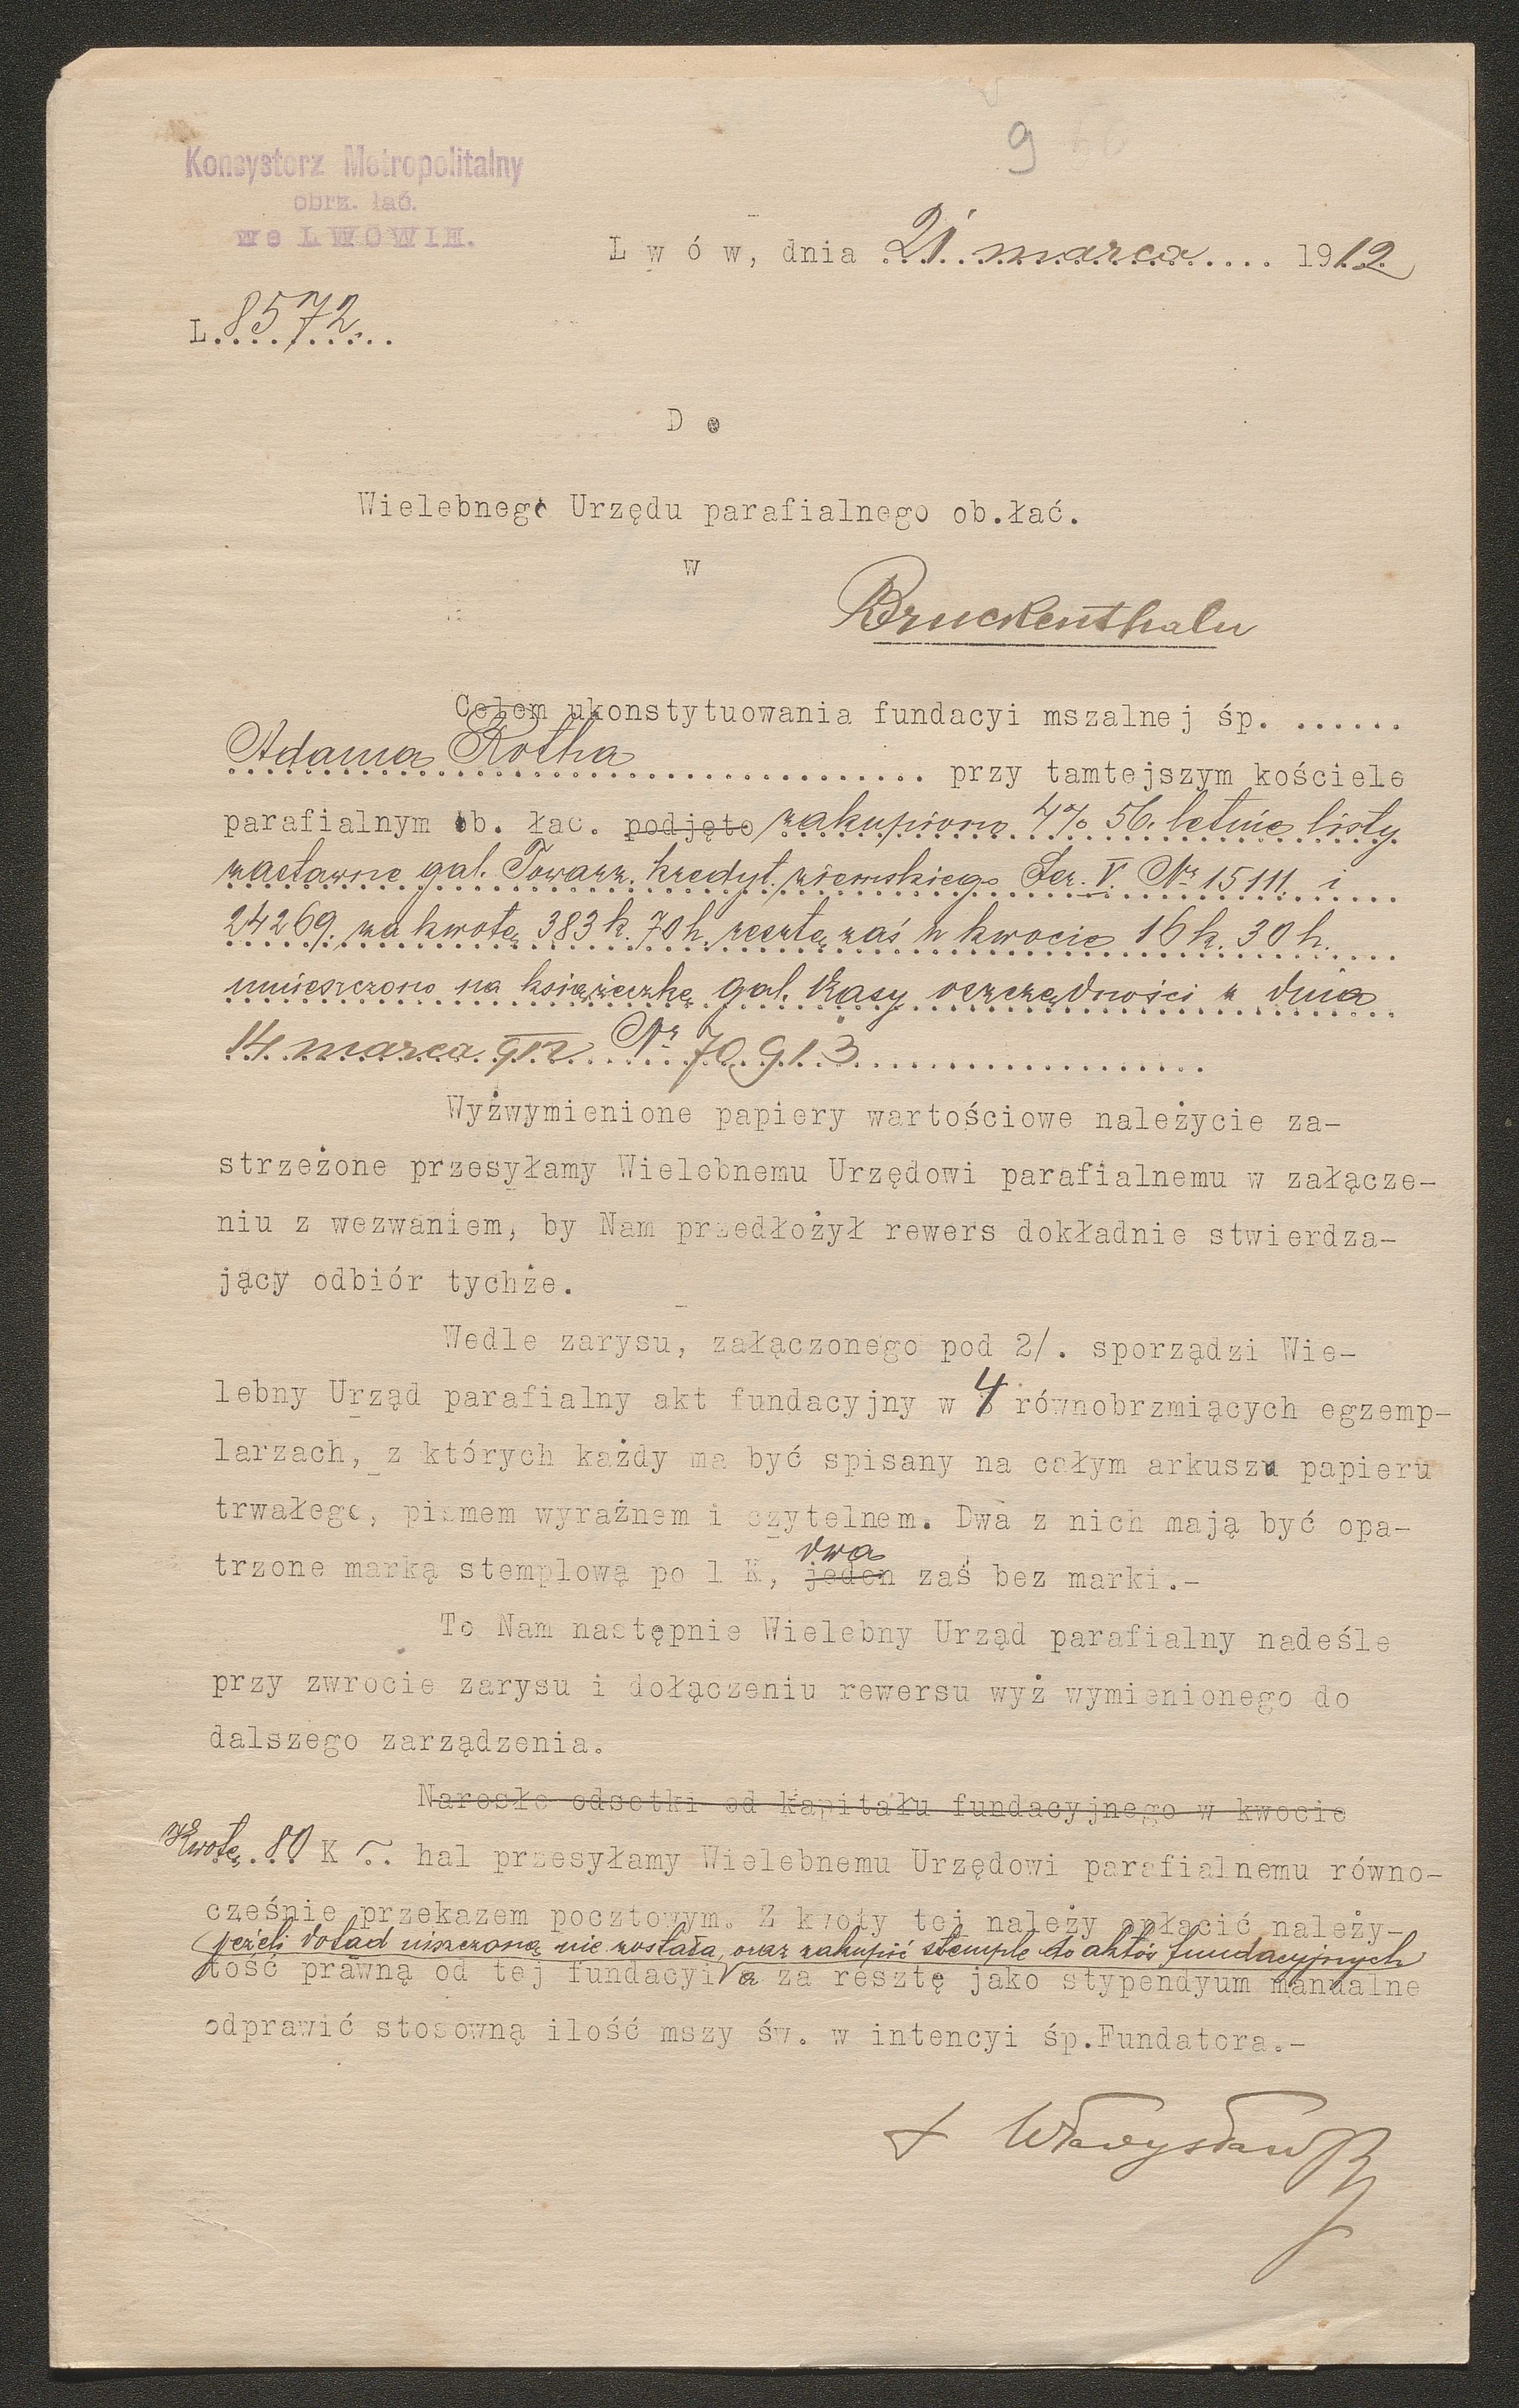 9
Konsystorz Metropolitalny
obrz. łać.
we LWOWIE.
Lwów, dnia 21. marca 1912
L. 8572.
Do
Wielebnego Urzędu parafialnego ob.łać.
w
Bruckenthalu
Celem ukonstytuowania fundacyi mszalnej śp. ......
Adama Rotha ............ przy tamtejszym kościele
parafialnym ob. łac. podjęto zakupiono 4% 56. letnie listy
zastawne gal. Towarz. kredyt. ziemskiego Ser. V. Nr 15111. i
24269. za kwotę 383 k. 70 h. resztę zaś w kwocie 16 k. 30 h.
umieszczono na książeczkę gal. Kasy oszczędności z dnia
14. marca 912 Nr 70913
Wyżwymienione papiery wartościowe należycie za-
strzeżone przesyłamy Wielebnemu Urzędowi parafialnemu w załącze-
niu z wezwaniem, by Nam przedłożył rewers dokładnie stwierdza-
jący odbiór tychże.
Wedle zarysu, załączonego pod 2/. sporządzi Wie-
lebny Urząd parafialny akt fundacyjny w 4 równobrzmiących egzemp-
larzach, z których każdy ma być spisany na całym arkuszu papieru
trwałego, pismem wyraźnem i czytelnem. Dwa z nich mają być opa-
dwa
trzone marką stemplową po 1 K, jeden zaś bez marki.-
To Nam następnie Wielebny Urząd parafialny nadeśle
przy zwrocie zarysu i dołączeniu rewersu wyż wymienionego do
dalszego zarządzenia.
Narosłe odsetki od kapitału fundacyjnego w kwocie
Kwotę 80 K - hal przesyłamy Wielebnemu Urzędowi parafialnemu równo-
cześnie przekazem pocztowym. Z kwoty tej należy opłacić należy-
jeżeli dotąd uiszczoną nie została, oraz zakupić stemple do aktów fundacyjnych
tość prawną od tej fundacyi a za resztę jako stypendyum manualne
odprawić stosowną ilość mszy św. w intencyi śp.Fundatora.-
+ Władysław